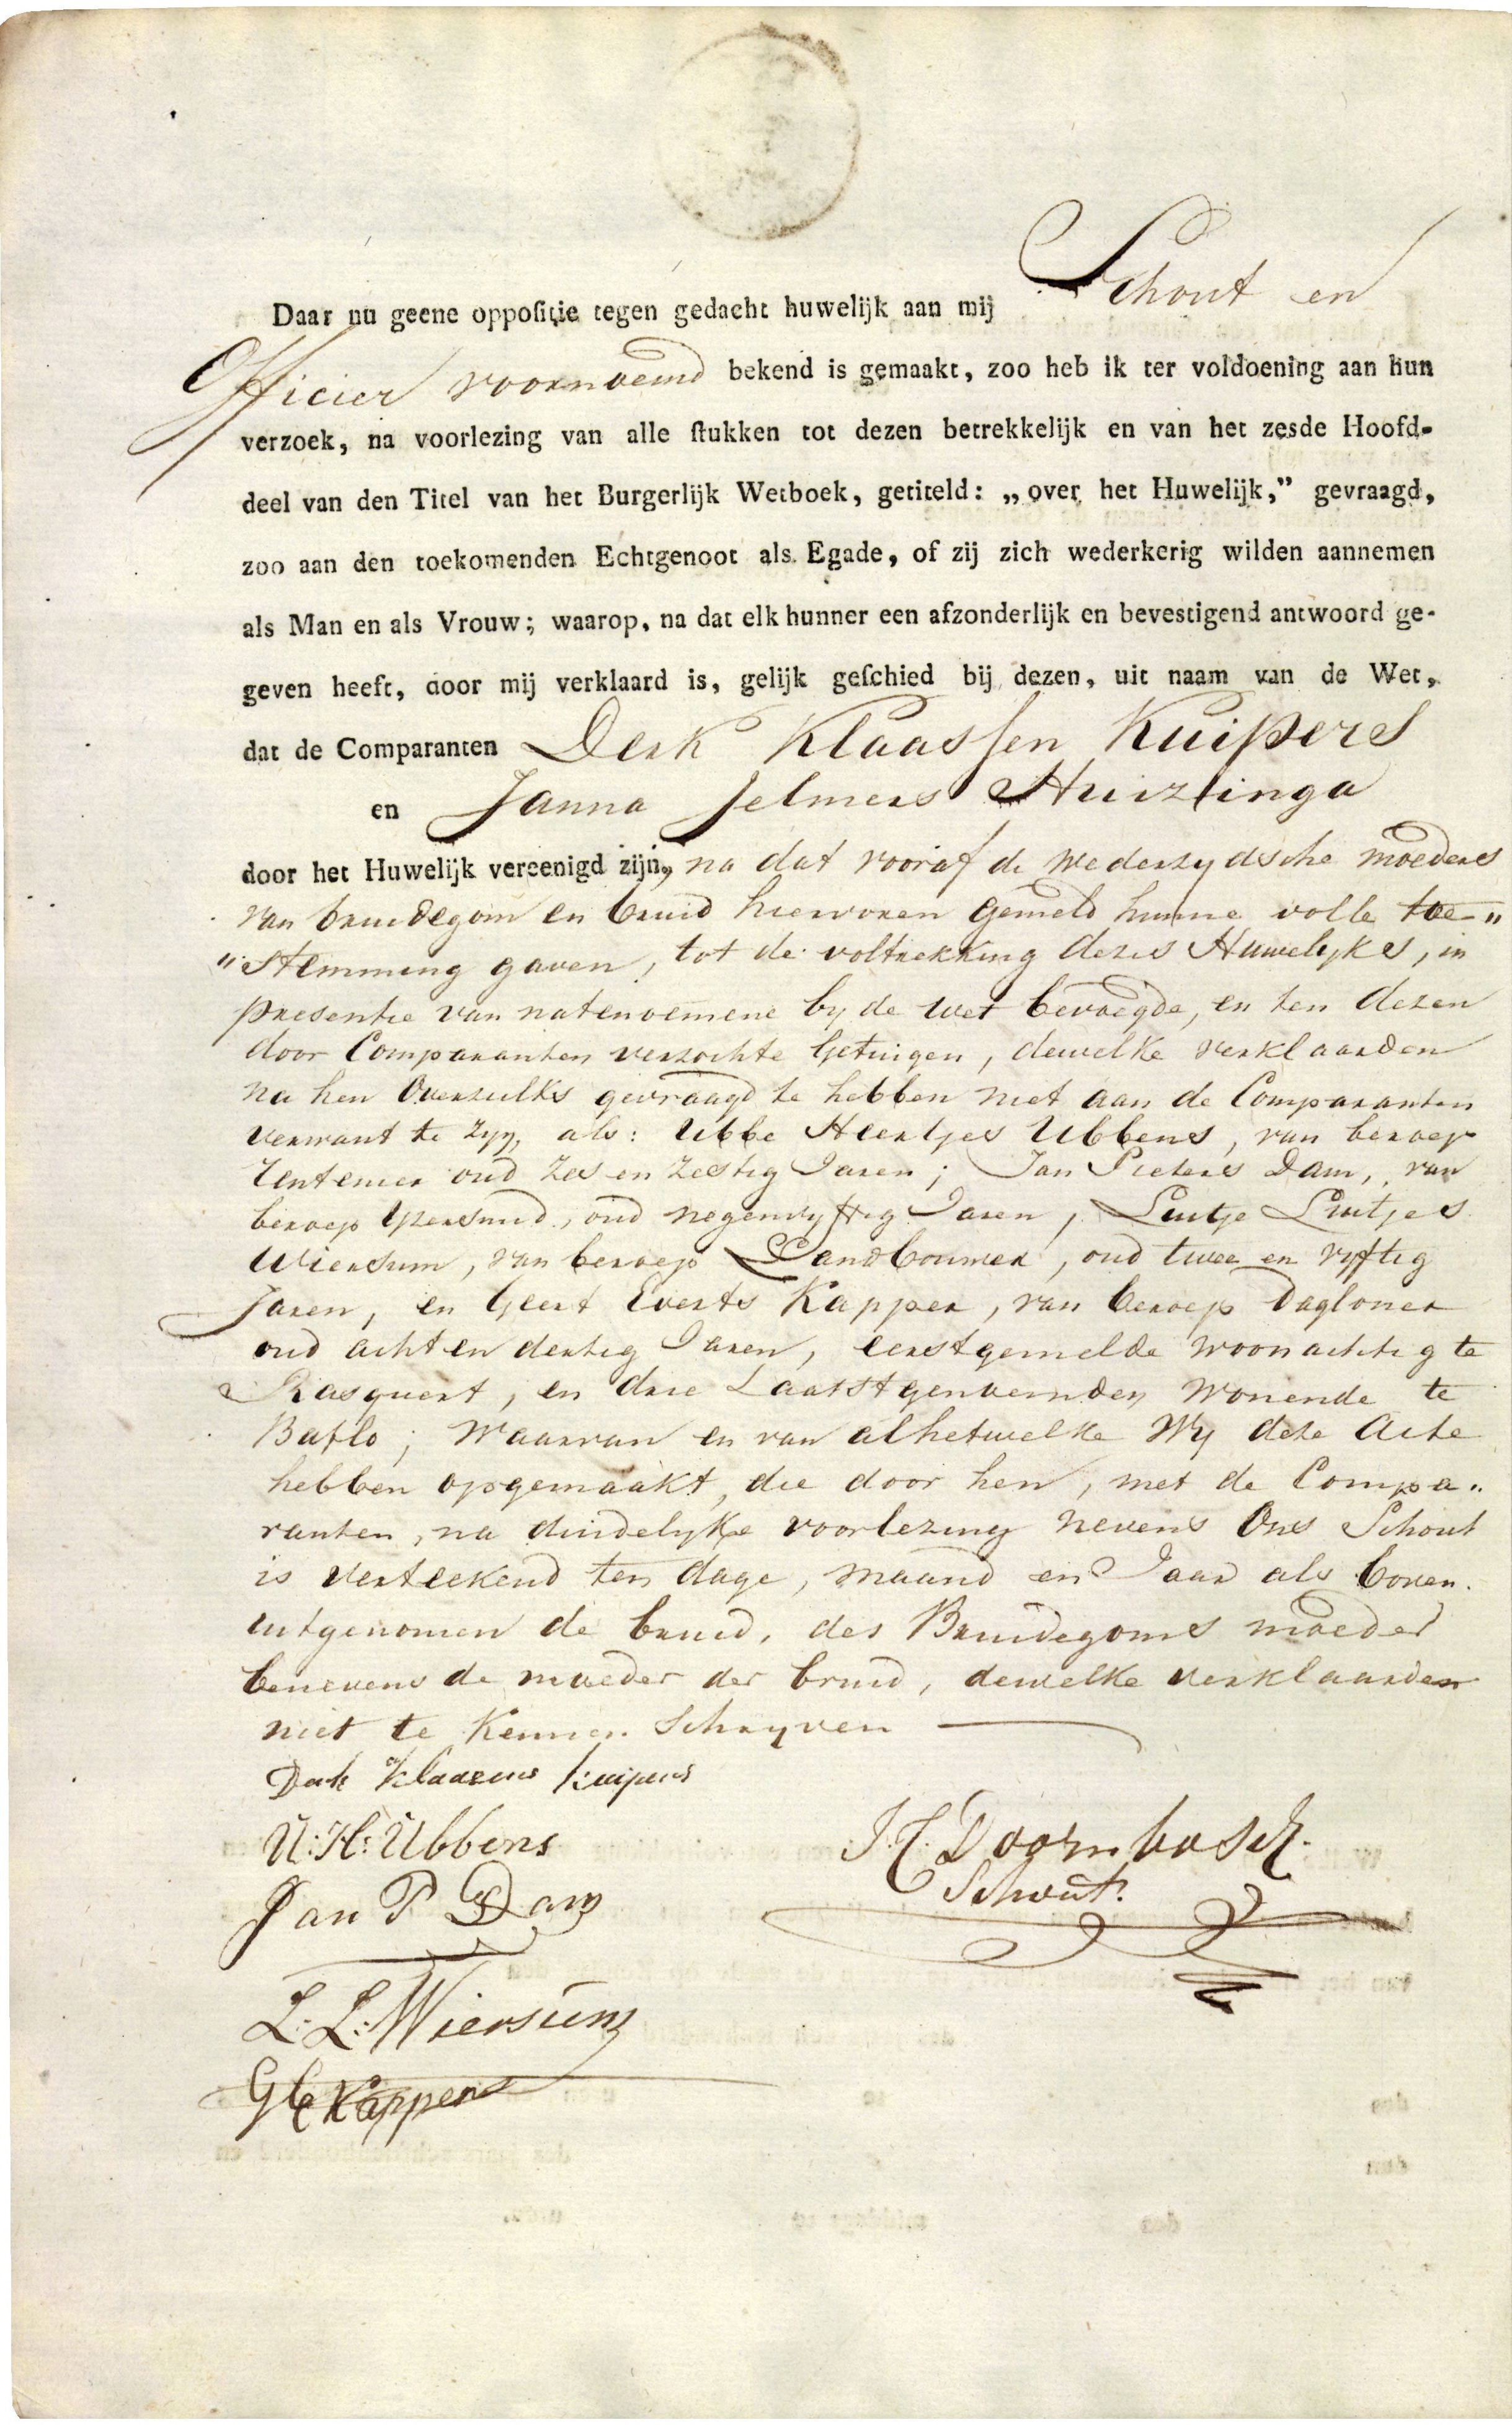 Daar nu geene oppositie tegen gedacht huwelijk aan mij Schout en
Officier voornoemd bekend is gemaakt, zoo heb ik ter voldoening aan hun
verzoek, na voorlezing van alle stukken tot dezen betrekkelijk en van het zesde Hoofd-
deel van den Titel van het Burgerlijk Wetboek, getiteld: „over het Huwelijk,” gevraagd,
zoo aan den toekomenden Echtgenoot als Egade, of zij zich wederkerig wilden aannemen
als Man en als Vrouw; waarop, na dat elk hunner een afzonderlijk en bevestigend antwoord ge-
geven heeft, door mij verklaard is, gelijk geschied bij dezen, uit naam van de Wet,
dat de Comparanten Derk Klaassen Kuipers
en Janna Jelmers Huizinga
door het Huwelijk vereenigd zijn, na dat vooraf de wederzydsche moeders
van bruidegom en bruid hiervoren gemeld hunne volle toe-"
"stemming gaven, tot de voltrekking dezes Huwelyks, in
presentie van natenoemene by de wet bevoegde, en ten dezen
door Comparanten verzochte Getuigen, dewelke verklaarden
na hen Overzulks gevraagd te hebben niet aan de Comparanten
verwant te zyn, als: Ubbe Heertjes Ubbens, van beroep
rentenier oud zes en zestig Jaren; Jan Pieters Dam, van
beroep Yzersmid, oud negenvyftig Jaren, Luitje Luitjes
Wiersum, van beroep Landbouwer, oud twee en vyftig
Jaren, en Geert Everts Kapper, van beroep Dagloner
oud acht en dertig Jaren, eerstgemelde woonachtig te
Rasquert, en drie Laatstgenoemden wonende te
Baflo; waarvan en van alhetwelke Wy deze Acte
hebben opgemaakt, die door hen, met de Compa"
ranten, na duidelyke voorlezing nevens Ons Schout
is verteekend ten dage, maand en Jaar als boven.
uitgenomen de bruid, des Bruidegoms moeder
benevens de moeder der bruid, dewelke verklaarden
niet te kennen Schryven
Derk Klaasens Kuipers
U: H: Ubbens
J. C. Doornbosch.
Schout.
Jan P Dam
L: L: Wiersum
G E Kapper